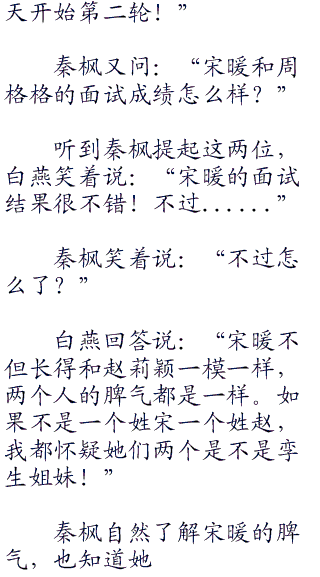 天开始第二轮！”
秦枫又问：“宋暖和周
格格的面试成绩怎么样？”
听到秦枫提起这两位，
白燕笑着说：“宋暖的面试
结果很不错！不过......”
秦枫笑着说：“不过怎
么了？”
白燕回答说：“宋暖不
但长得和赵莉颖一模一样，
两个人的脾气都是一样。如
果不是一个姓宋一个姓赵，
我都怀疑她们两个是不是孪
生姐妹！”
秦枫自然了解宋暖的脾
气，也知道她